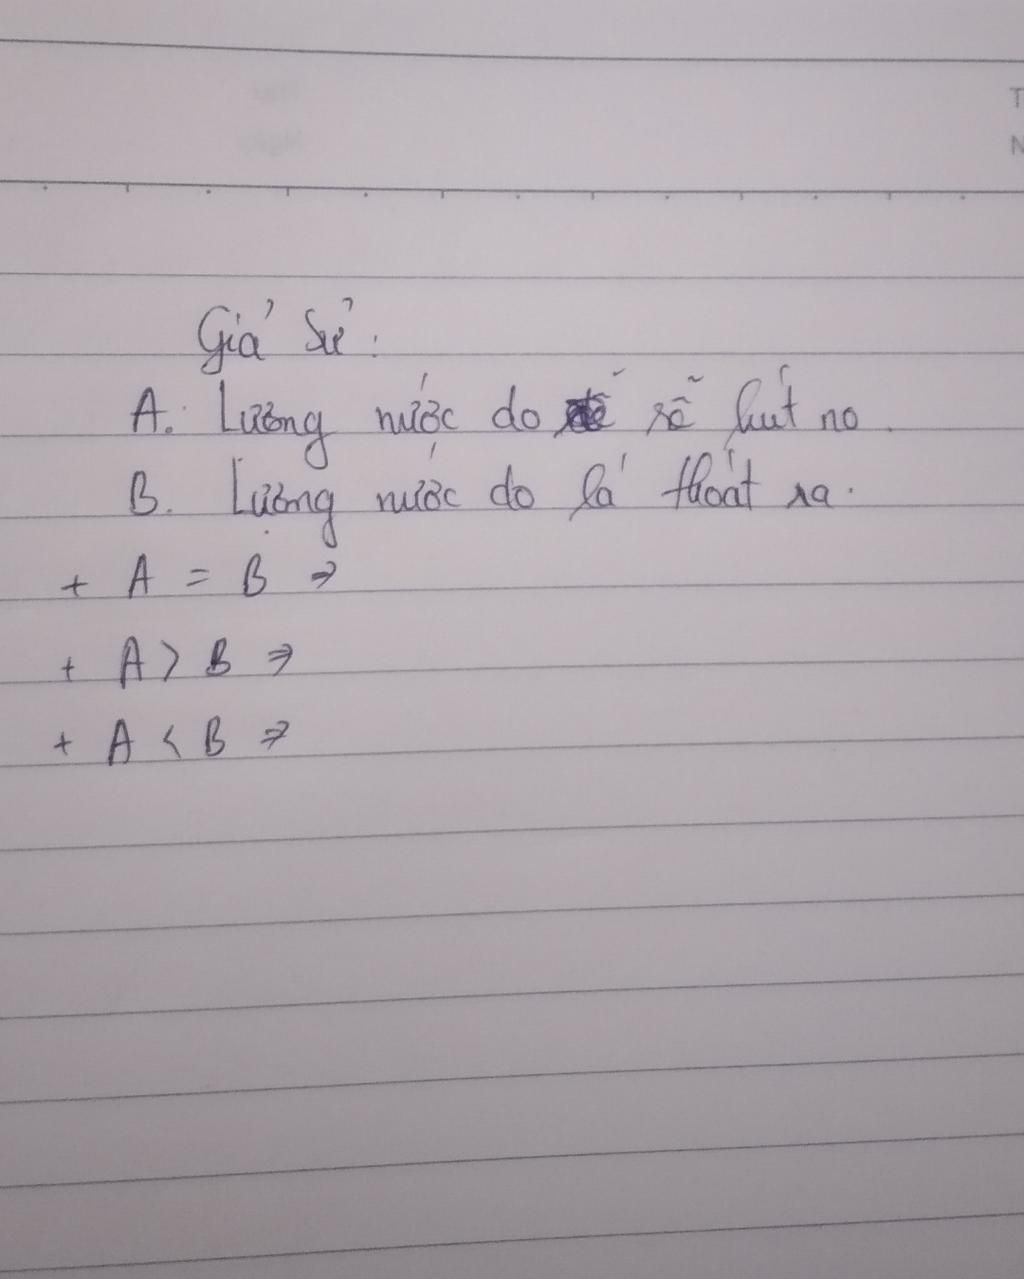 T
N
Giả sử:
A. Lượng nước do rễ hút no.
B. Lượng nước do lá thoát ra.
+ A = B ⇒
+ A > B ⇒
+ A < B ⇒